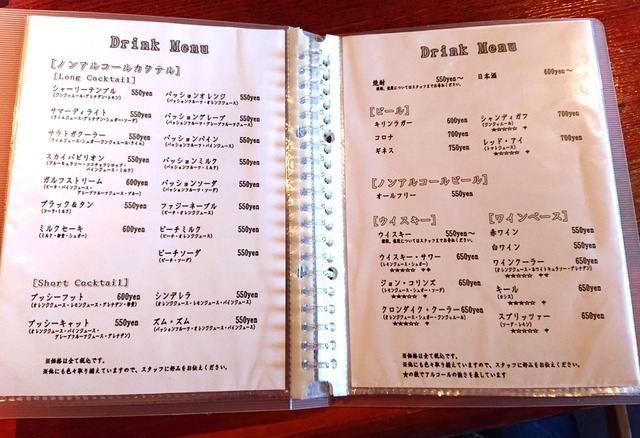 Drink Menu
[ノンアルコールカクテル]
[Long Cocktail]
シャーリーテンプル 550yen
(ジンジャエール・グレナデン・レモン)
サマーディライト 550yen
(ライムジュース・グレナデン・シュガー・ソーダ)
サラトガクーラー 550yen
スカイパピリオン 550yen
ガルフストリーム 600yen
(ピーチ・パインジュース・
グレープフルーツジュース・ブルー)
ブラック&タン 550yen
(コーラ・ミルク)
ミルクセーキ 600yen
(ミルク・卵黄・シュガー)
パッションオレンジ 550yen
(パッションフルーツ・オレンジジュース)
パッショングレープ 550yen
(パッションフルーツ・グレープフルーツジュース)
パッションパイン 550yen
(パッションフルーツ・パインジュース)
パッションミルク 550yen
(パッションフルーツ・ミルク)
パッションソーダ 550yen
(パッションフルーツ・ソーダ)
ファジーネーブル 550yen
(ピーチ・オレンジジュース)
ピーチミルク 550yen
(ピーチ・ミルク)
ピーチソーダ 550yen
(ピーチ・ソーダ)
[Short Cocktail]
プッシーフット 600yen
(オレンジジュース・レモンジュース・グレナデン・卵黄)
プッシーキャット 550yen
(オレンジジュース・パインジュース・
グレープフルーツジュース・グレナデン)
シンデレラ 550yen
(オレンジジュース・レモンジュース・パインジュース)
ズム・ズム 550yen
(パッションフルーツ・オレンジジュース・パインジュース)
※価格は全て税込です。
※他にも色々取り揃えていますので、スタッフに好みをお伝えください。
Drink Menu
焼酎 550yen〜
種類、価格についてはスタッフまでお尋ねください。
日本酒 600yen〜
[ビール]
キリンラガー 600yen
コロナ 700yen
ギネス 750yen
シャンディガフ 700yen
(ジンジャエール)
★★★★★ +
レッド・アイ 700yen
(トマトジュース)
★★★★★ +
[ノンアルコールビール]
オールフリー 550yen
[ウイスキー]
ウイスキー 550yen〜
種類、価格についてはスタッフまでお尋ねください。
ウイスキー・サワー 650yen
(レモンジュース・シュガー)
ジョン・コリンズ 650yen
(レモンジュース・シュガー・ソーダ)
クロンダイク・クーラー 650yen
(オレンジジュース・シュガー・ジンジャエール)
[ワインベース]
赤ワイン 550yen
白ワイン 550yen
ワインクーラー 650yen
(オレンジジュース・ホワイトキュラソー・グレナデン)
キール 650yen
(カシス)
スプリッツァー 650yen
(ソーダ・レモン)
※価格は全て税込です。
※他にも色々取り揃えていますので、スタッフに好みをお伝えください。
★の数でアルコールの強さを表しています